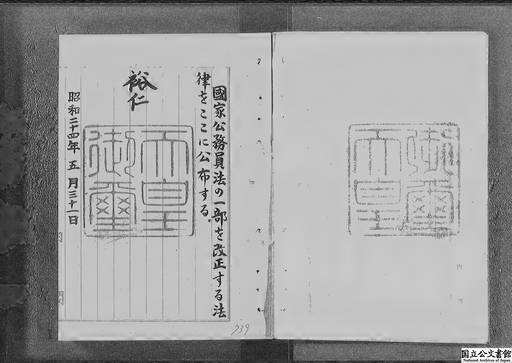 國家公務員法の一部を改正する法
律をここに公布する
裕仁
天皇
御璽
昭和二十四年五月三十一日
739
国立公文書館
National Archives of Japan